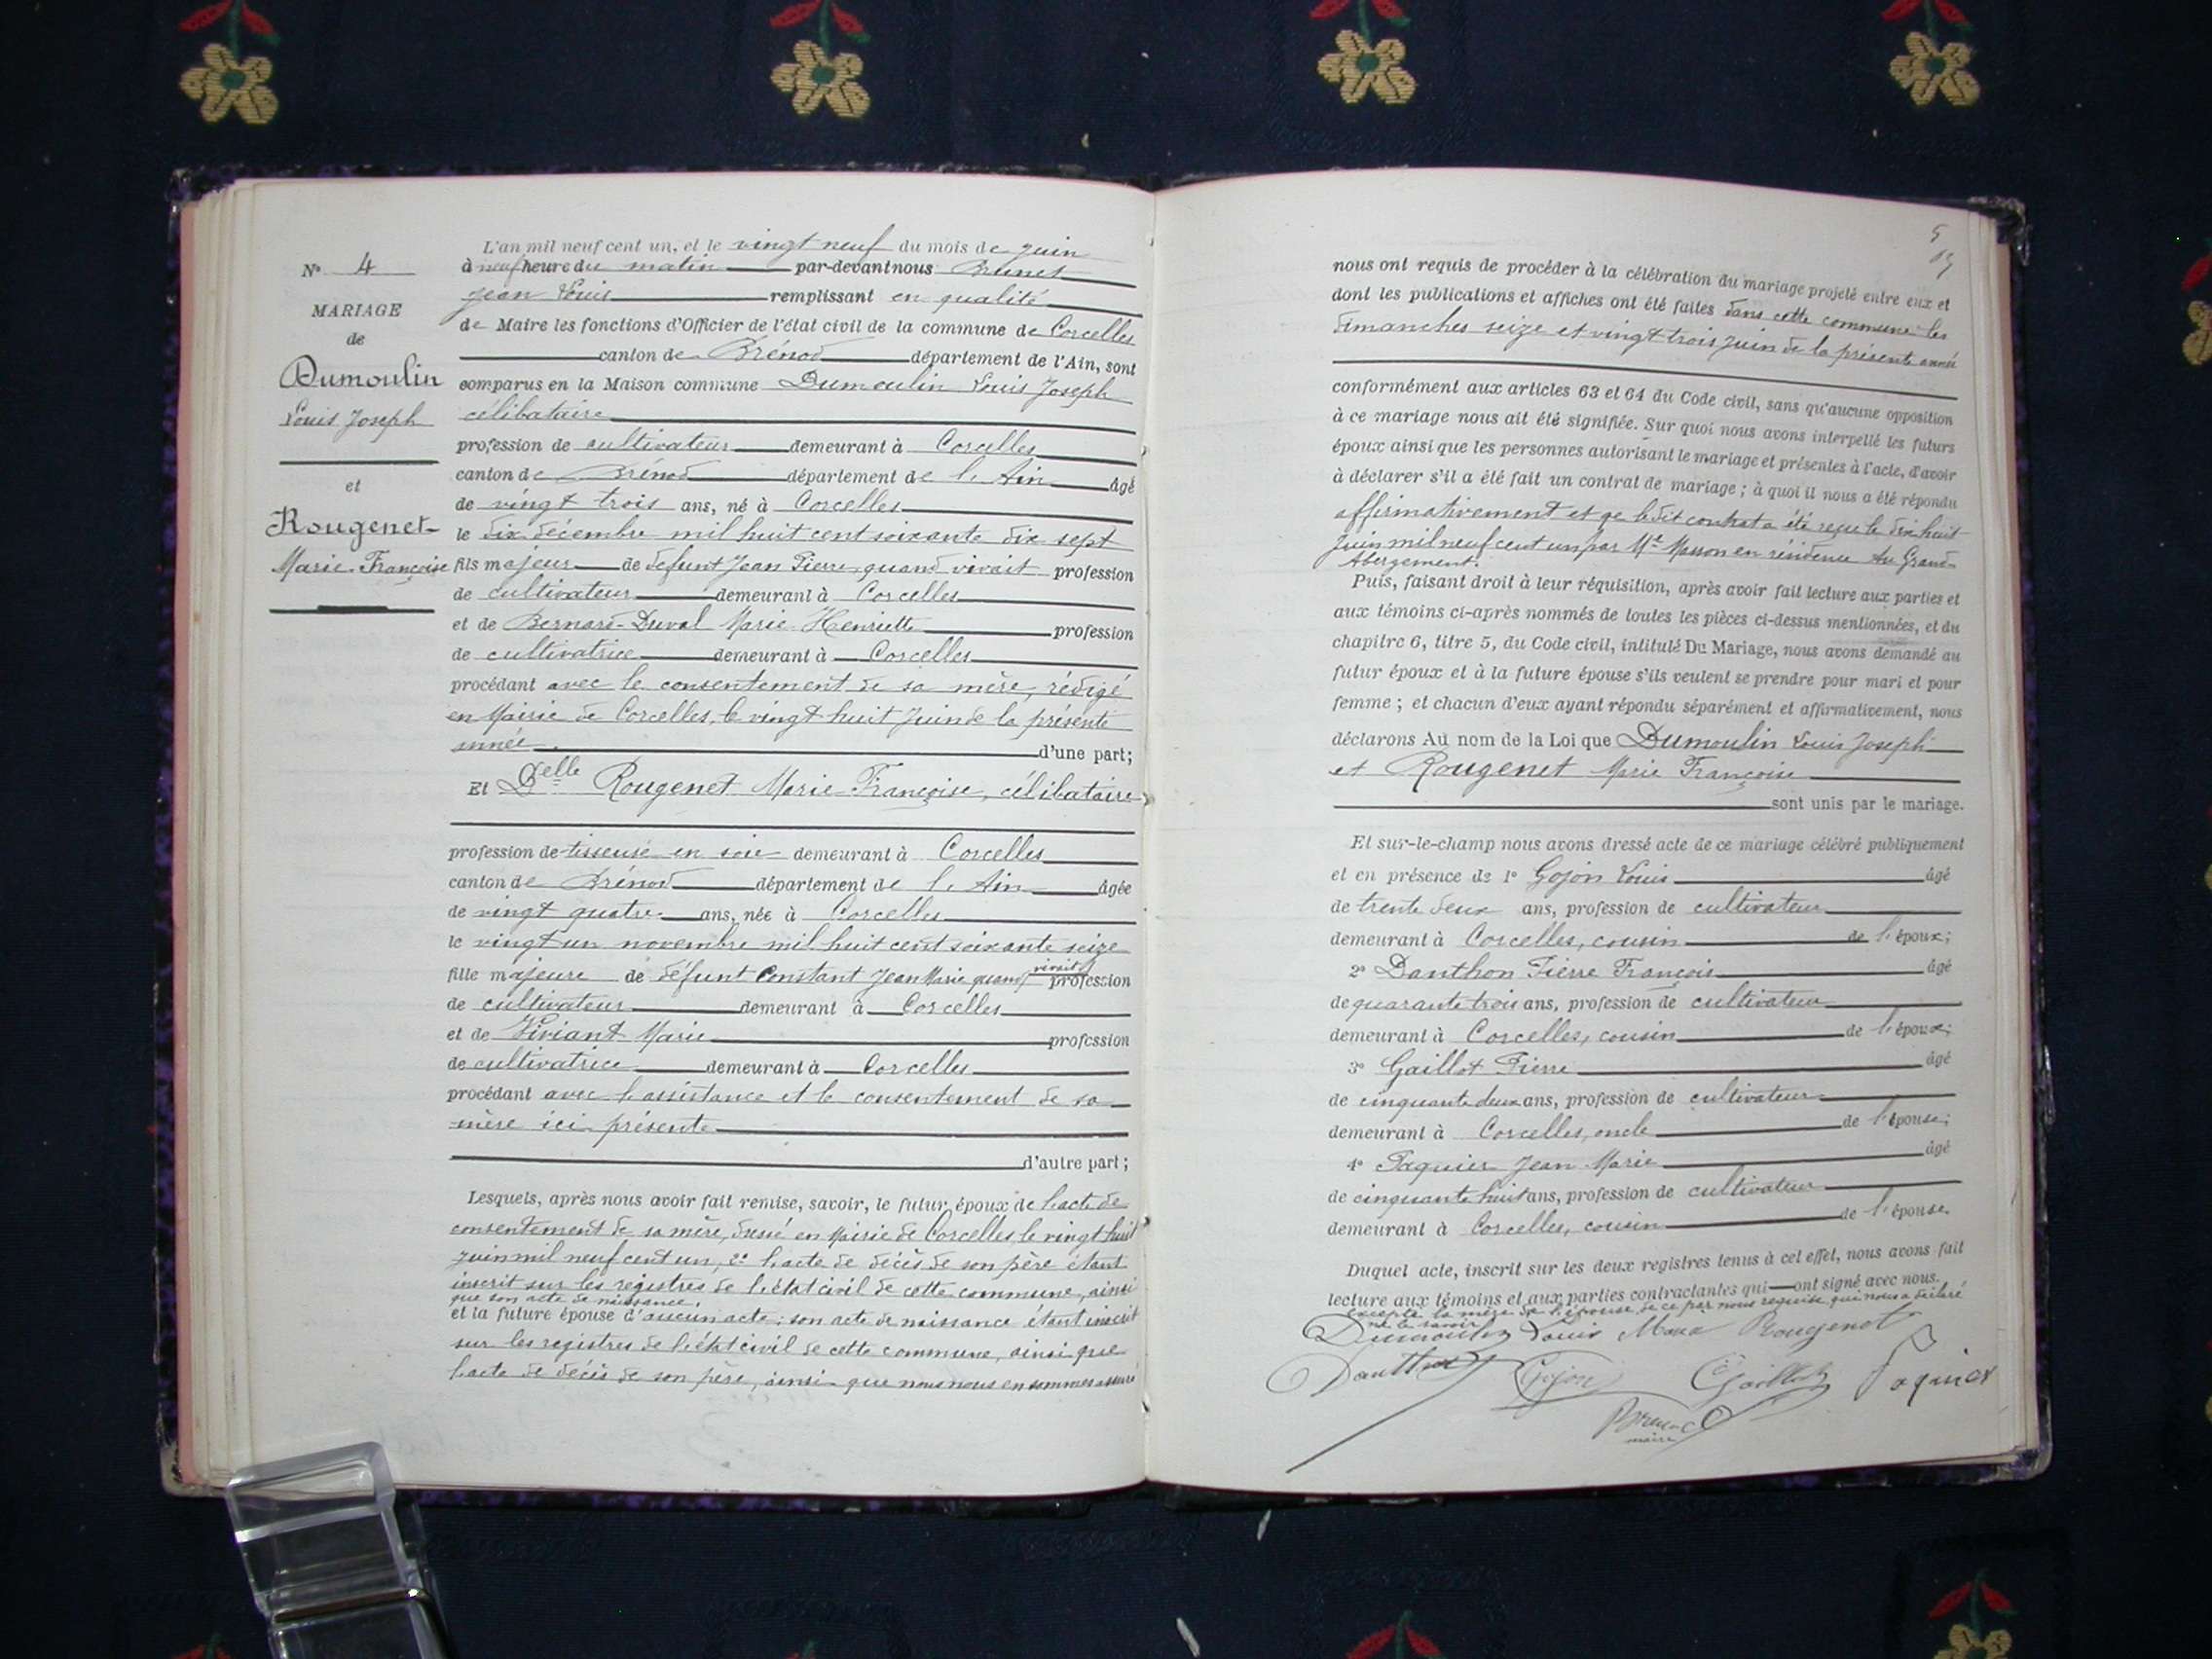 N° 4
MARIAGE
de
Dumoulin
Louis Joseph
et
Rougenet
Marie Françoise
L'an mil neuf cent un, et le vingt neuf du mois de juin
à neuf heure du matin par-devant nous Brunet
Jean Louis remplissant en qualité
de Maire les fonctions d'Officier de l'état civil de la commune de Corcelles
canton de Brénod département de l'Ain, sont
comparus en la Maison commune Dumoulin Louis Joseph
célibataire
profession de cultivateur demeurant à Corcelles
canton de Brénod département de l'Ain âgé
de vingt trois ans, né à Corcelles
le dix décembre mil huit cent soixante dix sept
fils majeur de défunt Jean Pierre, quand vivait profession
de cultivateur demeurant à Corcelles
et de Bernard-Duval Marie Henriette profession
de cultivatrice demeurant à Corcelles
procédant avec le consentement de sa mère, rédigé
en Mairie de Corcelles, le vingt huit Juin de la présente
année. d'une part;
Et Delle Rougenet Marie Françoise, célibataire
profession de tisseuse en soie demeurant à Corcelles
canton de Brénod département de l'Ain âgée
de vingt quatre ans, née à Corcelles
le vingt un novembre mil huit cent soixante seize
fille majeure de défunt Constant Jean Marie quand vivait profession
de cultivateur demeurant à Corcelles
et de Viviant Marie profession
de cultivatrice demeurant à Corcelles
procédant avec l'assistance et le consentement de sa
mère ici présente
d'autre part;
Lesquels, après nous avoir fait remise, savoir, le futur époux de l'acte de
consentement de sa mère, dressé en Mairie de Corcelles, le vingt huit
juin mil neuf cent un, 2° l'acte de décès de son père étant
inscrit sur les registres de l'état civil de cette commune, ainsi
que son acte de naissance,
et la future épouse d'aucun acte; son acte de naissance étant inscrit
sur les registres de l'état civil de cette commune, ainsi que
l'acte de décès de son père, ainsi que nous nous en sommes assuré
5
nous ont requis de procéder à la célébration du mariage projeté entre eux et
dont les publications et affiches ont été faites dans cette commune les
dimanches seize et vingt trois juin de la présente année
conformément aux articles 63 et 64 du Code civil, sans qu'aucune opposition
à ce mariage nous ait été signifiée. Sur quoi nous avons interpellé les futurs
époux ainsi que les personnes autorisant le mariage et présentes à l'acte, d'avoir
à déclarer s'il a été fait un contrat de mariage; à quoi il nous a été répondu
affirmativement et qe le dit contrat a été reçu le dix huit
Juin mil neuf cent un par Me Masson en résidence Au Grand-
Abergement.
Puis, faisant droit à leur réquisition, après avoir fait lecture aux parties et
aux témoins ci-après nommés de toutes les pièces ci-dessus mentionnées, et du
chapitre 6, titre 5, du Code civil, intitulé Du Mariage, nous avons demandé au
futur époux et à la future épouse s'ils veulent se prendre pour mari et pour
femme; et chacun d'eux ayant répondu séparément et affirmativement, nous
déclarons Au nom de la Loi que Dumoulin Louis Joseph
et Rougenet Marie Françoise
sont unis par le mariage.
Et sur-le-champ nous avons dressé acte de ce mariage célébré publiquement
et en présence de 1° Gojon Louis âgé
de trente deux ans, profession de cultivateur
demeurant à Corcelles, cousin de l'époux;
2° Danthon Pierre François âgé
de quarante trois ans, profession de cultivateur
demeurant à Corcelles, cousin de l'époux;
3° Gaillot Pierre âgé
de cinquante deux ans, profession de cultivateur
demeurant à Corcelles, oncle de l'épouse;
4° Paquier Jean Marie âgé
de cinquante huit ans, profession de cultivateur
demeurant à Corcelles, cousin de l'épouse
Duquel acte, inscrit sur les deux registres tenus à cet effet, nous avons fait
lecture aux témoins et aux parties contractantes qui ont signé avec nous.
excepté la mère de l'épouse, de ce par nous requise, qui nous a déclaré
ne le savoir
Dumoulin Louis Rougenet
Danthon Gojon Gaillot Paquier
Brunet
maire